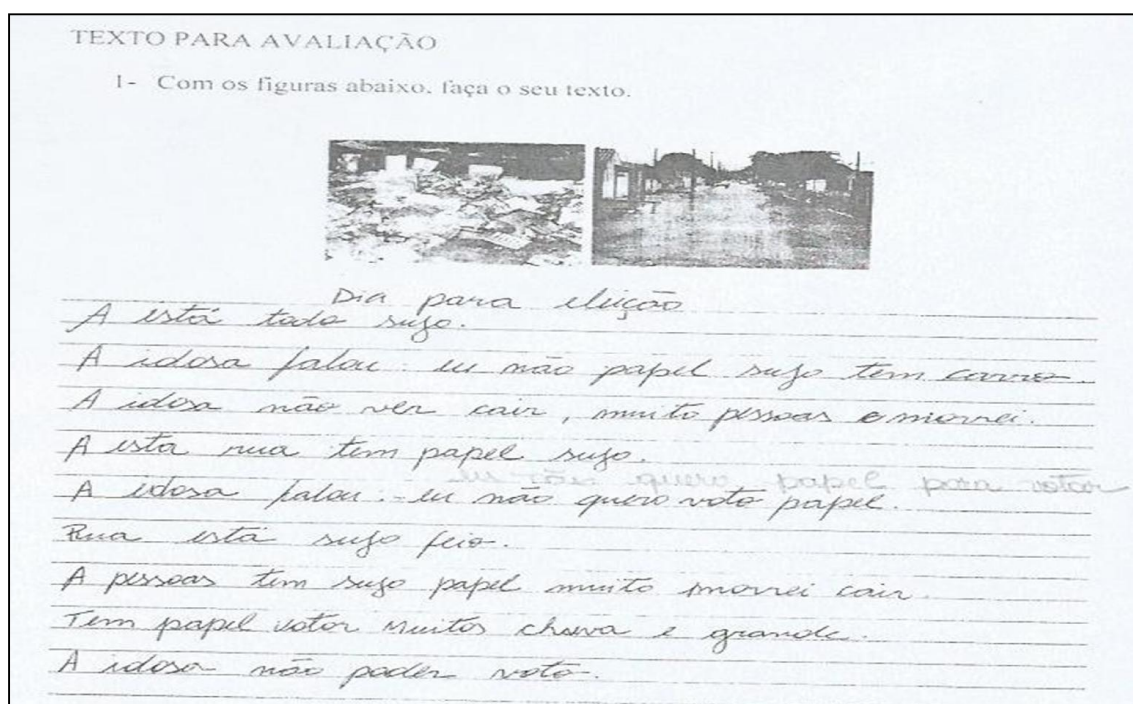 TEXTO PARA AVALIAÇÃO
1- Com os figuras abaixo, faça o seu texto.
Dia para eleição
A está todo sujo.
A idosa falou - eu não papel sujo tem carro.
A idosa não ver cair, muito pessoas e morrei.
A esta rua tem papel sujo.
eu não quero papel para votar
A idosa falou. - eu não quero voto papel.
Rua está sujo feio.
A pessoas tem sujo papel muito morrei cair.
Tem papel votor muitos chuva e grande.
A idosa não poder voto.